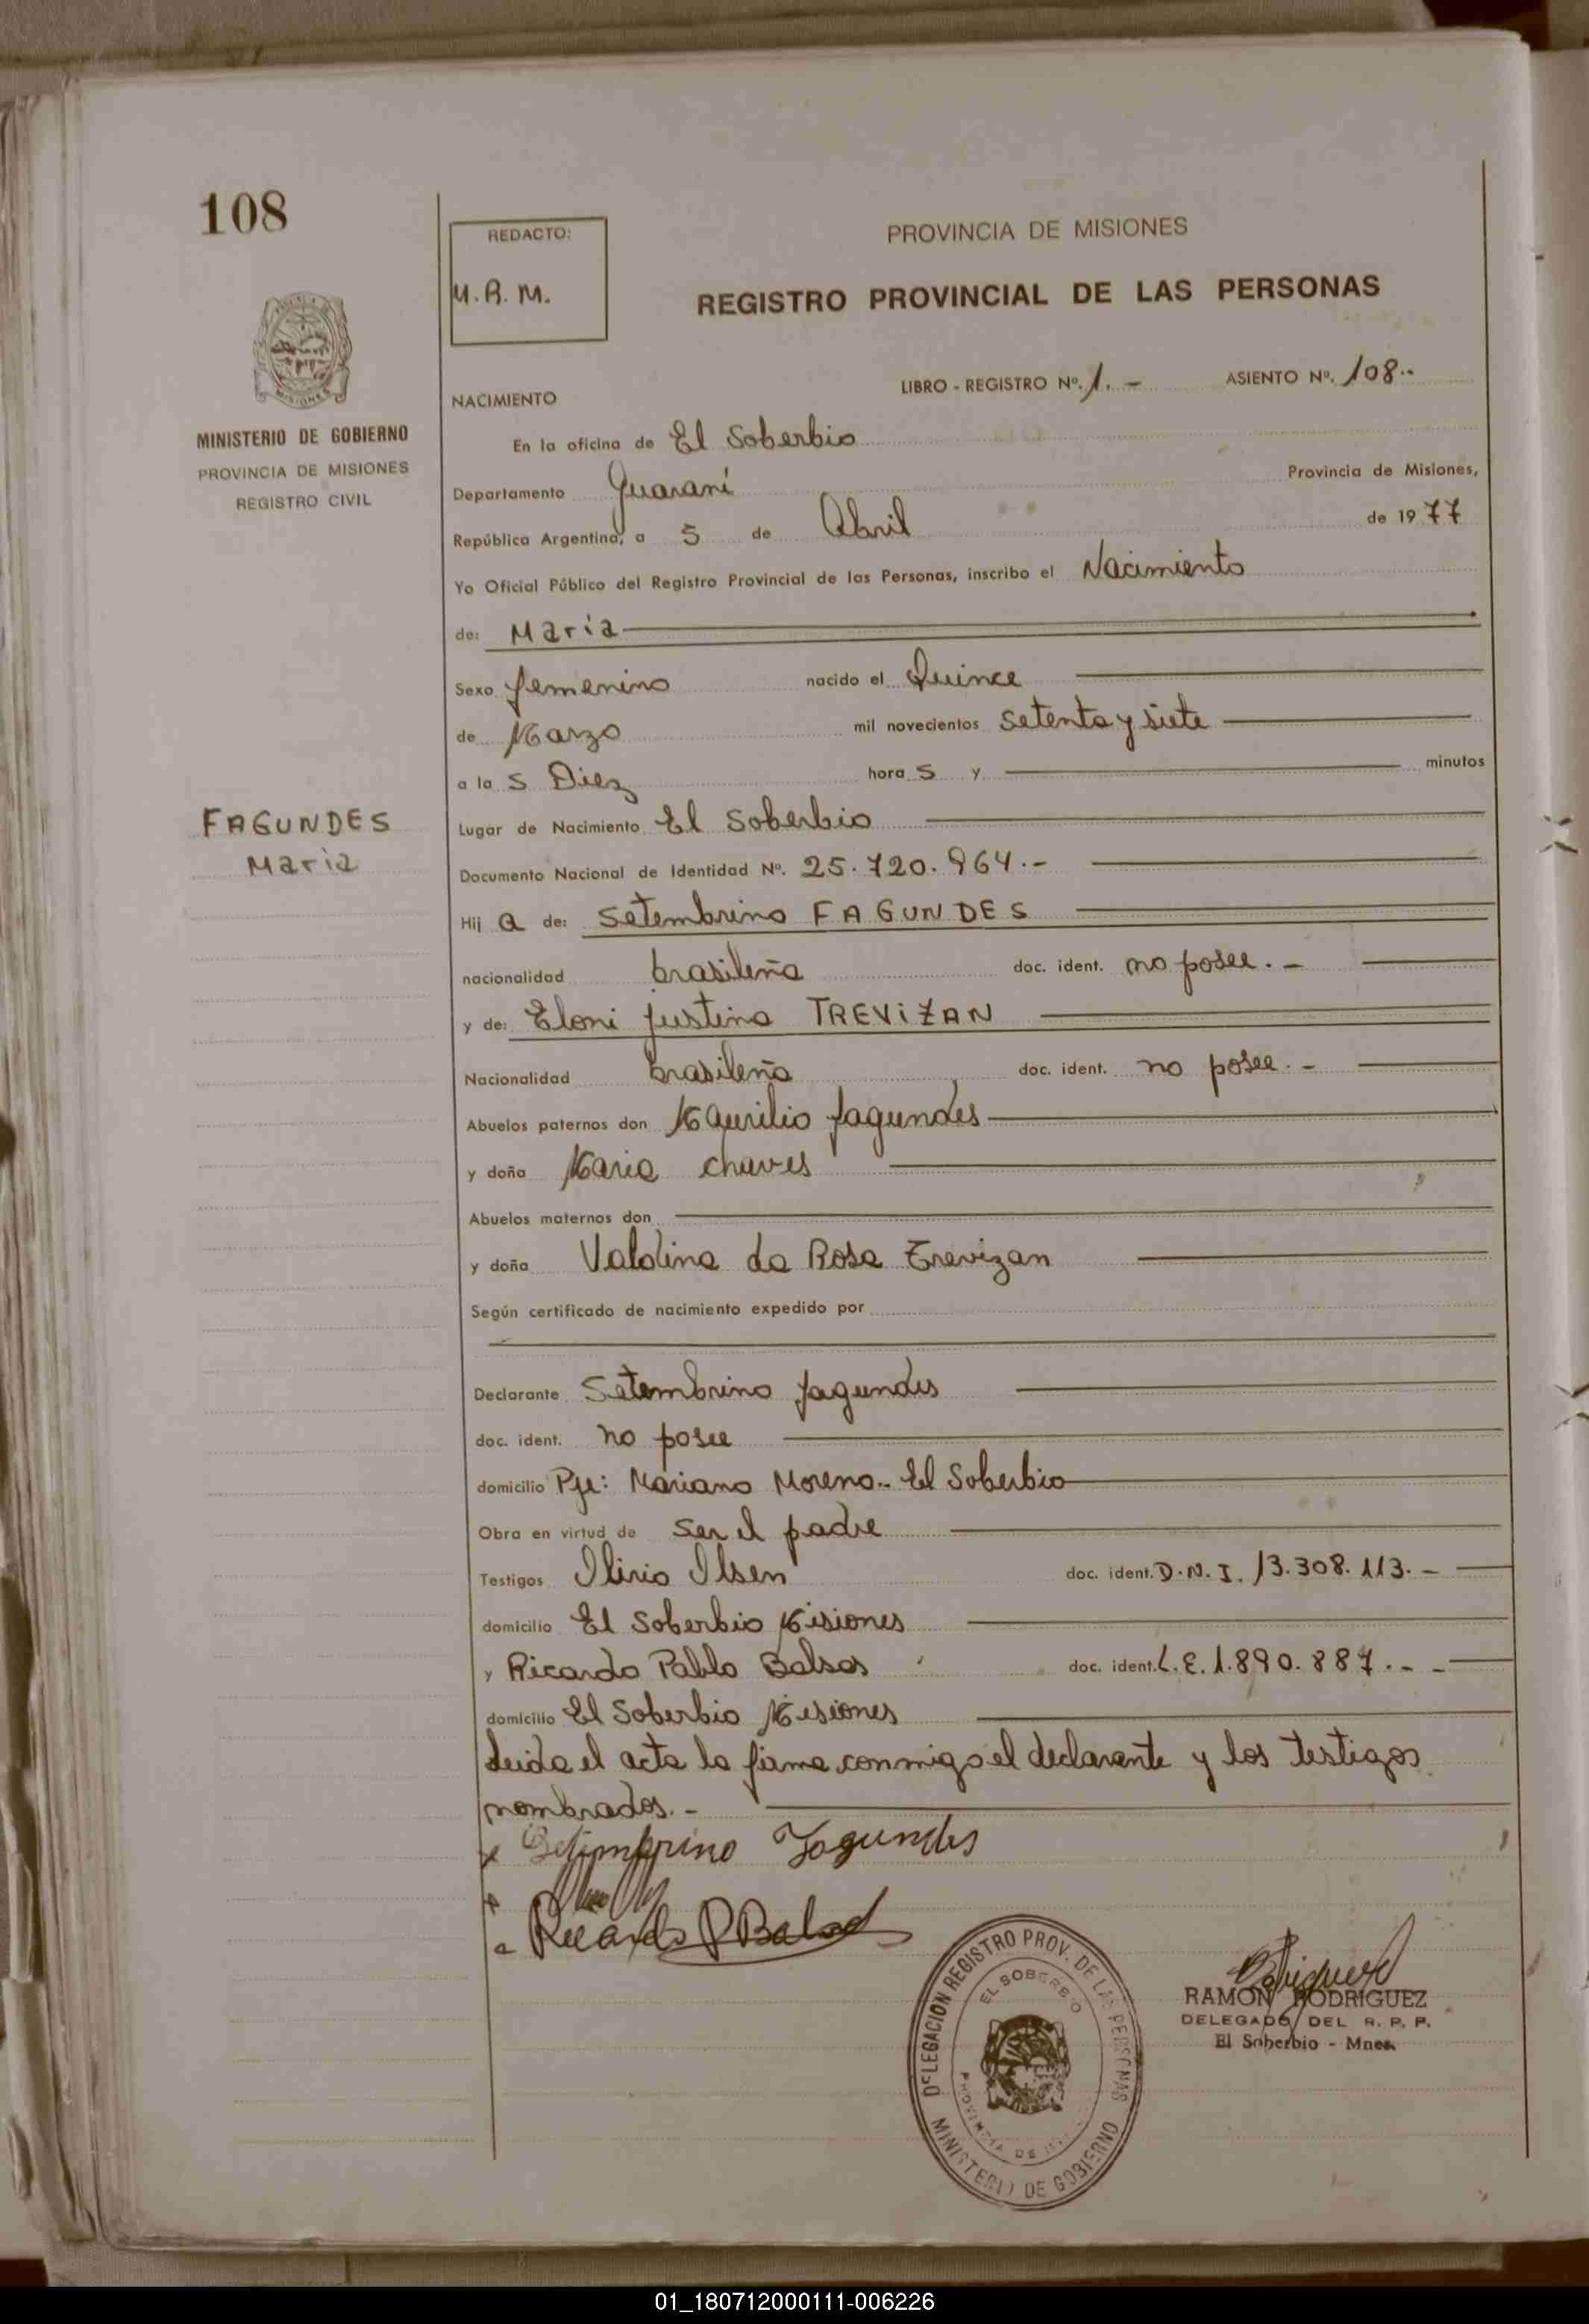 108
REDACTO:
M.R.M.
PROVINCIA DE MISIONES
REGISTRO PROVINCIAL DE LAS PERSONAS
MINISTERIO DE GOBIERNO
PROVINCIA DE MISIONES
REGISTRO CIVIL
NACIMIENTO LIBRO - REGISTRO Nº. 1.- ASIENTO Nº. 108.-
En la oficina de El Soberbio
Departamento Guaraní Provincia de Misiones,
República Argentina, a 5 de Abril de 1977
Yo Oficial Público del Registro Provincial de las Personas, inscribo el Nacimiento
de: Maria
Sexo femenino nacido el Quince
de Marzo mil novecientos setenta y siete
a la s Diez hora s y minutos
FAGUNDES
Maria
Lugar de Nacimiento El Soberbio
Documento Nacional de Identidad Nº. 25.720.964.-
Hij a de: Setembrino FAGUNDES
nacionalidad brasileña doc. ident. no posee.-
y de: Eloni Justina TREVIZAN
Nacionalidad brasileña doc. ident. no posee.-
Abuelos paternos don Maurilio Fagundes
y doña Maria chaves
Abuelos maternos don
y doña Valdina da Rosa Trevizan
Según certificado de nacimiento expedido por
Declarante Setembrino Fagundes
doc. ident. no posee
domicilio Pje: Mariano Moreno.- El Soberbio
Obra en virtud de ser el padre
Testigos Ilirio Ilsen doc. ident. D.N.I. 13.308.113.-
domicilio El Soberbio Misiones
y Ricardo Pablo Balsas doc. ident. L.E. 1.890.887.-
domicilio El Soberbio Misiones
Leida el acta la firma conmigo el declarante y los testigos
nombrados.-
x Setembrino Fagundes
Ricardo P Balsas
DELEGACION REGISTRO PROV. DE LAS PERSONAS
EL SOBERBIO
PROVINCIA DE
MINISTERIO DE GOBIERNO
RAMON RODRIGUEZ
DELEGADO DEL R. P. P.
El Soberbio - Mnes.
01_180712000111-006226